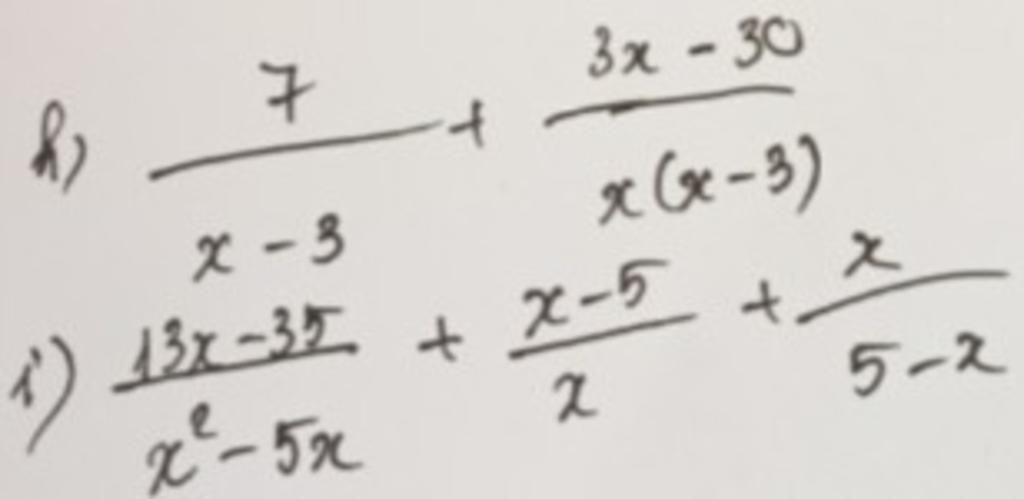 h) \frac{7}{x - 3} + \frac{3x - 30}{x(x - 3)}
i) \frac{13x - 35}{x^2 - 5x} + \frac{x - 5}{x} + \frac{x}{5 - x}